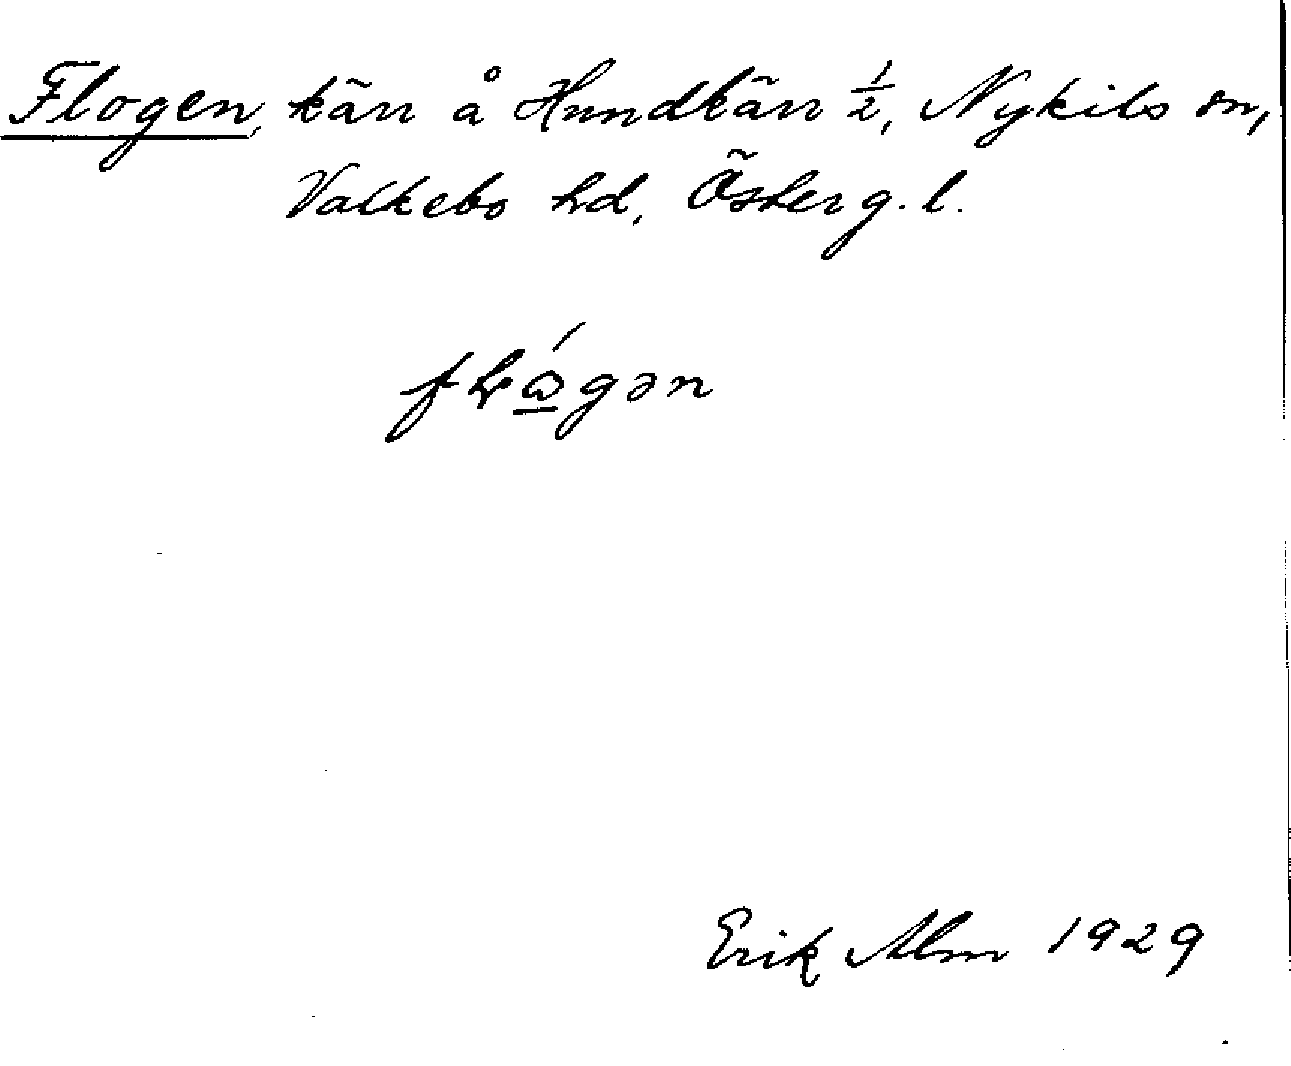 Flogen, kärr å Hundkärr 1/2, Nykils sn,
Valkebo hd, Österg. l.
Erik Alm 1929